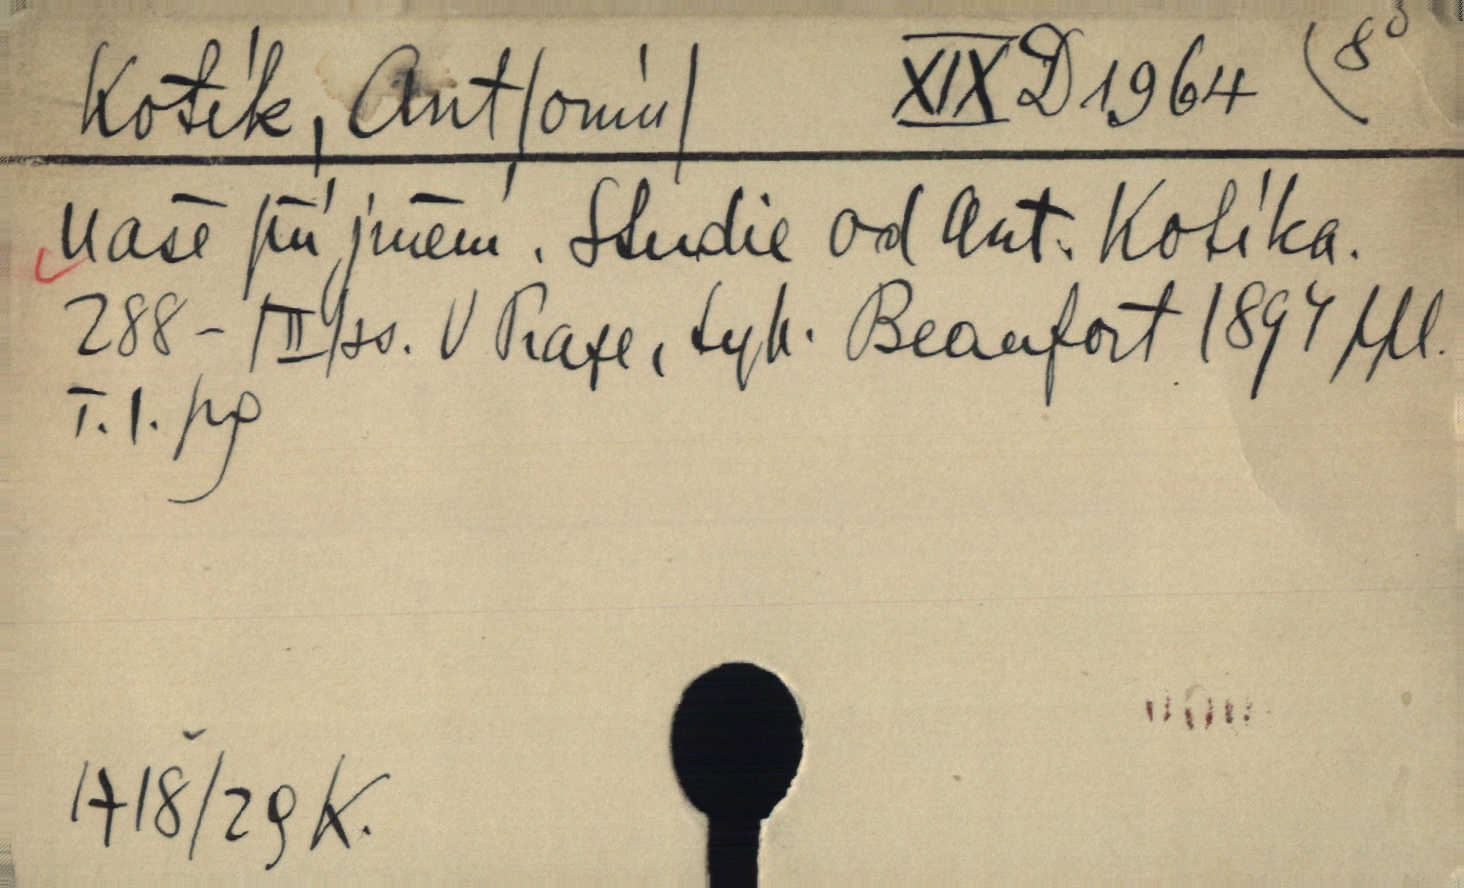 Kotík, Ant/onín/ XIX D 1964 (8°
Naše příjmení. Studie od Ant. Kotíka.
288-/III/ss. V Praze, typ. Beaufort 1894
T. 1. pg
1718/29 K.